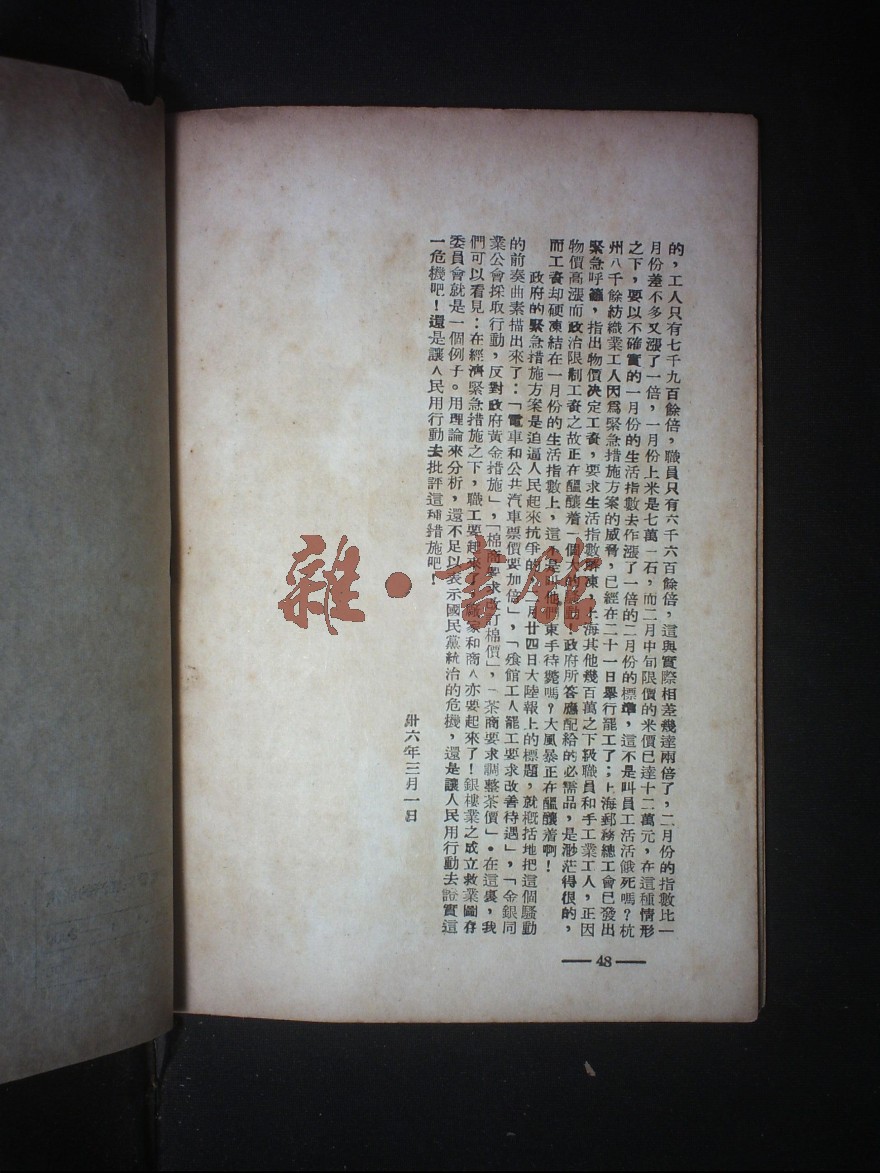 的，工人只有七千九百餘倍，職員只有六千六百餘倍，這與實際相差幾達兩倍了，二月份的指數比一
月份差不多又漲了一倍，一月份上米是七萬一石，而二月中旬限價的米價已達十二萬元，在這種情形
之下，要以不確實的一月份的生活指數去作漲了一倍的二月份的標準，這不是叫員工活活餓死嗎？杭
州八千餘紡織業工人因爲緊急措施方案的威脅，已經在二十一日舉行罷工了；上海郵務總工會已發出
緊急呼籲，指出物價決定工資，要求生活指數解凍，上海其他幾百萬之下級職員和手工業工人，正因
物價高漲而政治限制工資之故正在醞釀着一個大的騷動！政府所答應配給的必需品，是渺茫得很的，
而工資却硬凍結在一月份的生活指數上，這不是叫他們束手待斃嗎？大風暴正在醞釀着啊！
政府的緊急措施方案是迫逼人民起來抗爭的，二月廿四日大陸報上的標題，就概括地把這個騷動
的前奏曲素描出來了：「電車和公共汽車票價要加倍」，「飱館工人罷工要求改善待遇」，「金銀同
業公會採取行動，反對政府黃金措施」，「棉商要求改訂棉價」，「茶商要求調整茶價」。在這裏，我
們可以看見：在經濟緊急措施之下，職工要起來了，廠家和商人亦要起來了！銀樓業之成立救業圖存
委員會就是一個例子。用理論來分析，還不足以表示國民黨統治的危機，還是讓人民用行動去證實這
一危機吧！還是讓人民用行動去批評這種措施吧！
卅六年三月一日
48
雜·書館